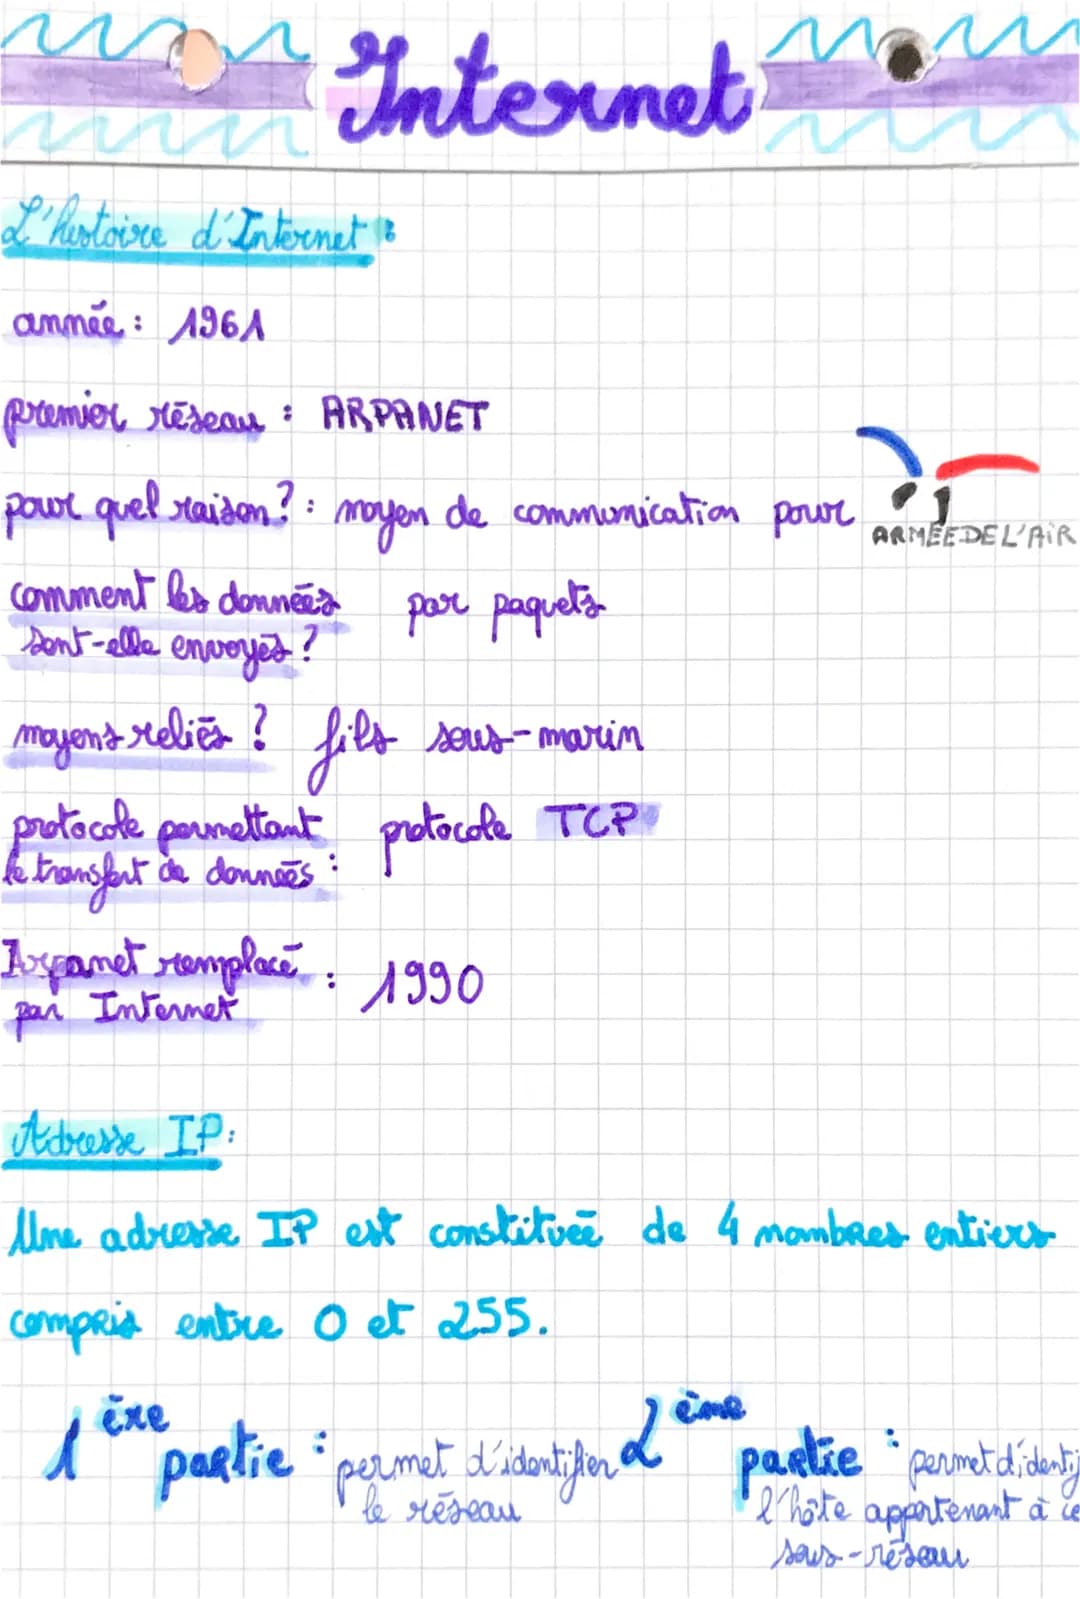 Internet
L'histoire d'Internet :
année : 1961
premier réseau : ARPANET
pour quel raison ? : moyen de communication pour ARMÉE DE L'AIR
comment les données par paquets
sont-elle envoyés ?
moyens reliés ? fils sous-marin
protocole permettant protocole TCP
le transfert de données :
Arpanet remplacé : 1990
par Internet
Adresse IP :
Une adresse IP est constituée de 4 nombres entiers
compris entre 0 et 255.
1ère partie : permet d'identifier 2ème partie : permet d'identi
le réseau l'hôte appartenant à ce
sous-réseau